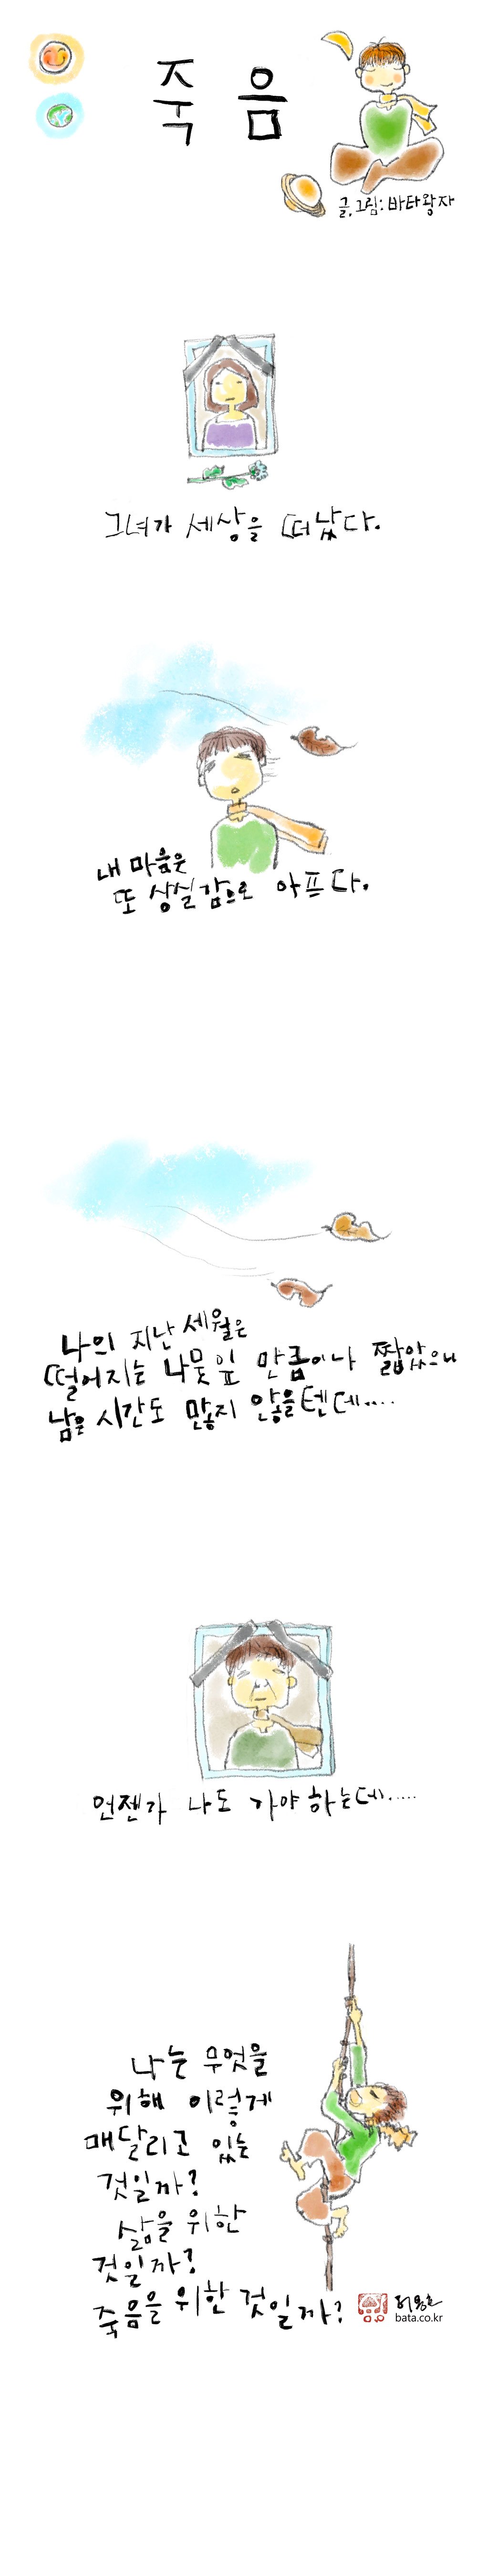 죽음
글, 그림: 바타왕자
그녀가 세상을 떠났다.
내 마음은
또 상실감으로 아프다.
나의 지난 세월은
떨어지는 나뭇잎 만큼이나 짧았으니
남은 시간도 많지 않을텐데....
언젠가 나도 가야하는데.....
나는 무엇을
위해 이렇게
매달리고 있는
것일까?
삶을 위한
것일까?
죽음을 위한 것일까?
bata.co.kr